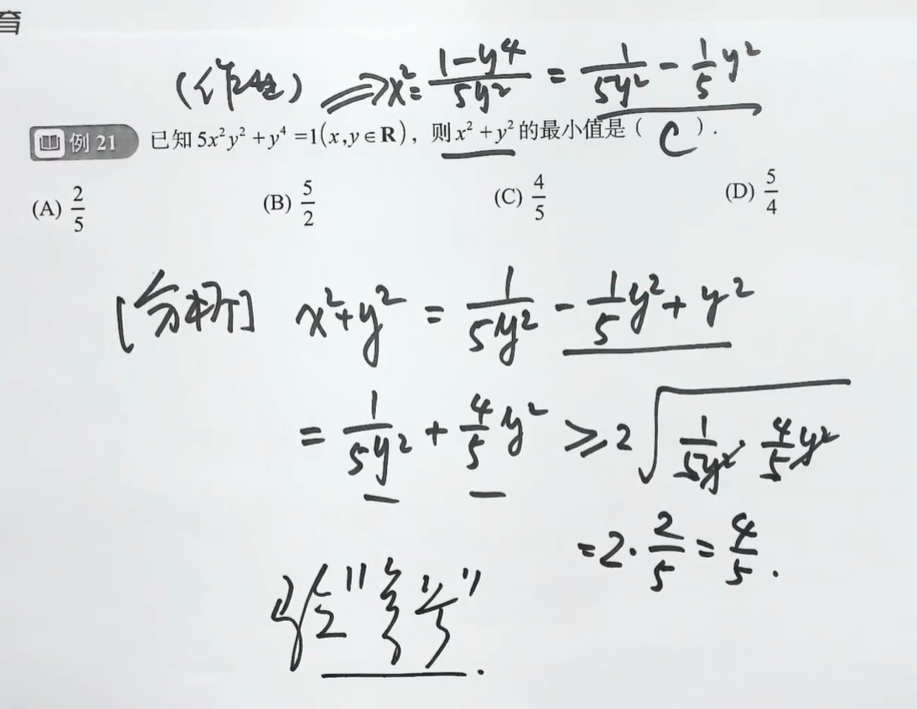 育
(作业) ⟹ x² = (1-y⁴)/(5y²) = 1/(5y²) - 1/5 y²
例 21 已知 5x²y² + y⁴ = 1(x, y ∈ R), 则 x² + y² 的最小值是 ( C ).
(A) 2/5 (B) 5/2 (C) 4/5 (D) 5/4
[分析] x² + y² = 1/(5y²) - 1/5 y² + y²
= 1/(5y²) + 4/5 y² ≥ 2√(1/(5y²) · 4/5 y²)
= 2 · 2/5 = 4/5 .
验"等号".